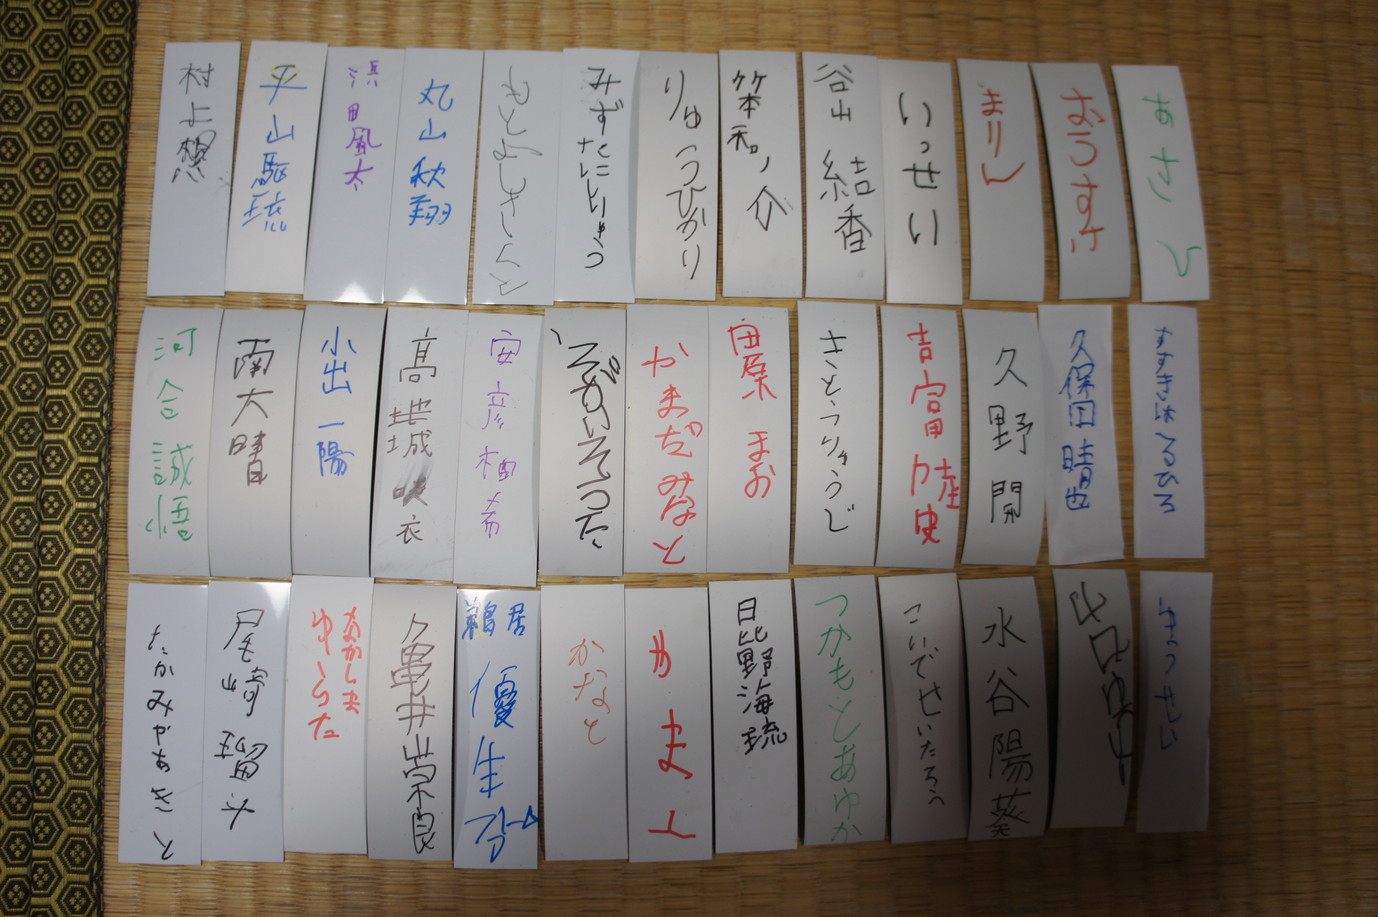 村上想
平山駆琉
浜田風太
丸山秋翔
もとよしさくと
みずたにりゅう
りゅうひかり
笨和ノ介
谷山結香
いっせい
まりん
おうすけ
あさひ
河合誠悟
南大晴
小出一陽
高地城咲衣
安彦柚希
かまだみなと
まお
さとうりゅうじ
吉富力
久野開
久保田晴也
すずきはるひろ
たかみやあきと
尾崎瑠斗
ながしまゆうた
亀井崇良
鵜居優生
かなと
日比野海琉
つかもとあゆか
こいでせいたろう
水谷陽葵